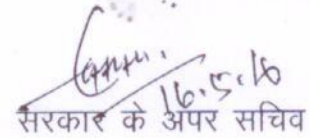 16.5.16
सरकार के अपर सचिव